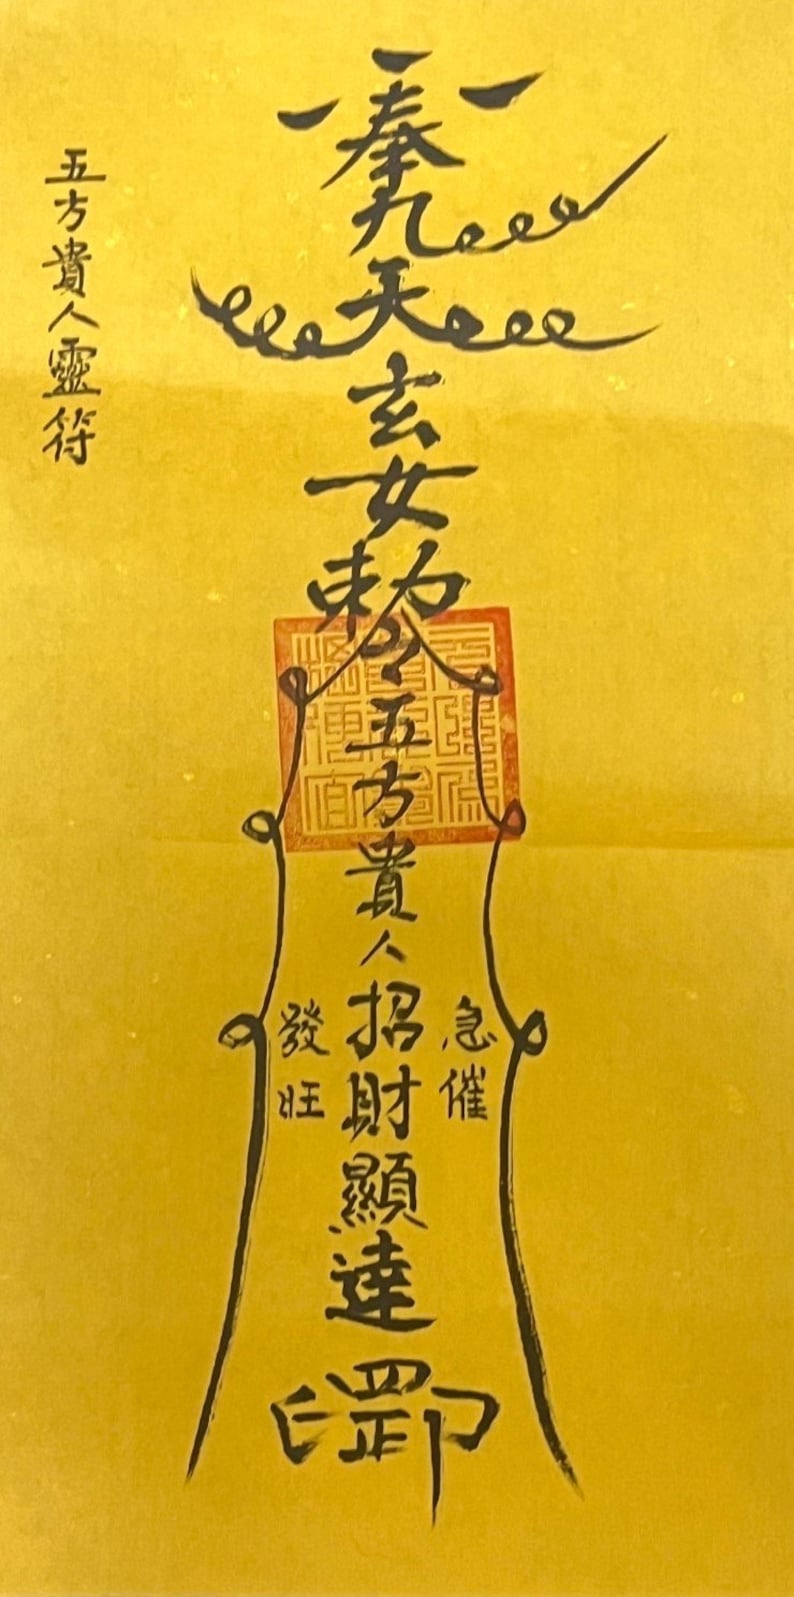 五方貴人靈符
奉九天玄女勅令五方貴人招財顯達罡印
急催
發旺